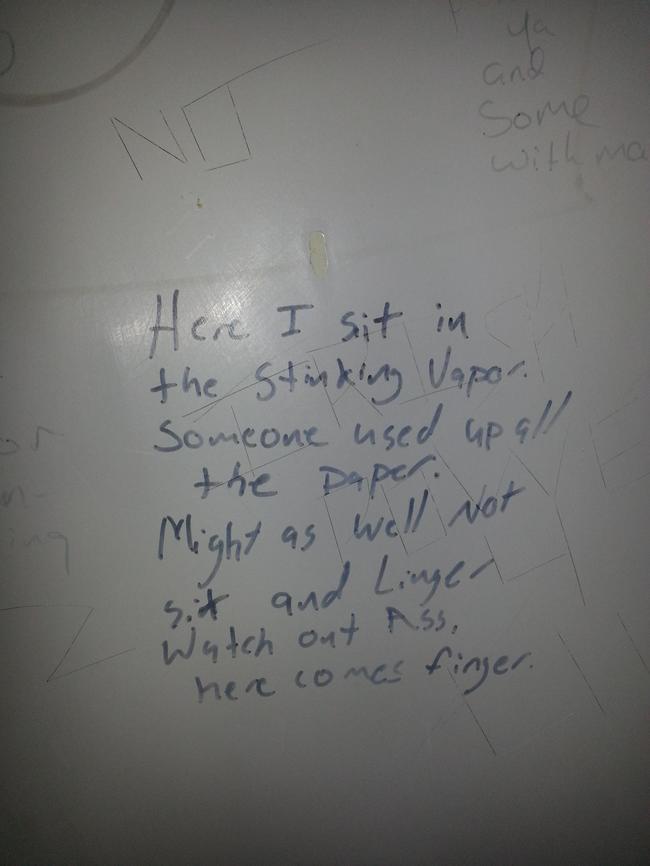 NO
ya
and
some
with ma
Here I sit in
the stinking Vapor.
Someone used up all
the paper.
Might as well Not
sit and Linger
Watch out Ass,
here comes finger.